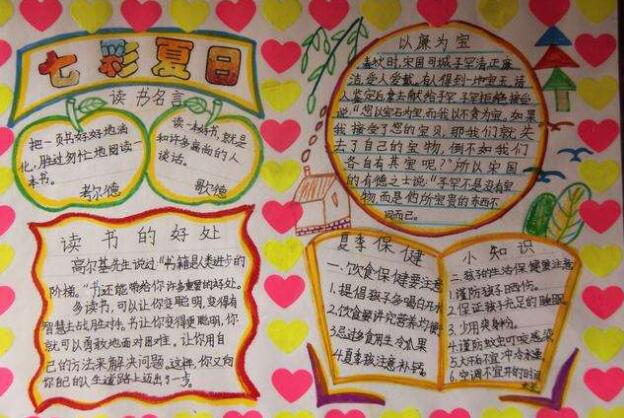 七彩夏日
读书名言
把一页书好好地消
化,胜过匆忙地阅读一
本书。
读一本好书,就是
和许多高尚的人
谈话。
歌德
读书的好处
高尔基先生说过:“书籍是人类进步的
阶梯。”书还能带给你许多重要的好处。
多读书,可以让你变聪明,变得有
智慧去战胜对手。书让你变得更聪明,你
就可以勇敢地面对困难。让你用自
己的方法来解决问题。这样,你又向
你自己的人生道路上迈出了一步。
以廉为宝
春秋时,宋国司城子罕清正廉
洁,受人爱戴。有人得到一块宝玉,
人鉴定后拿去献给子罕,子罕拒绝接受
说:“您以宝石为宝,而我以不贪为宝。如果
我接受了您的宝贝,那我们就失
去了自己的宝物,倒不如我们
各自有其宝呢?”所以宋国
的有德之士说:“子罕不是没有宝
物,而是他所宝贵的东西不
同而已。
夏季保健
一、饮食保健要注意
1.提倡孩子多喝白开水
2.饮食要讲究营养均衡
3.忌过多食用冷瓜果
4.夏季孩注意补钙。
小知识
二、孩子的生活保健要注意
1.谨防孩子晒伤。
2.保证孩子充足的睡眠
3.少用爽身粉。
4.谨防蚊虫叮咬感染
5.大汗后不宜冲冷水澡
6.空调不宜开的时间